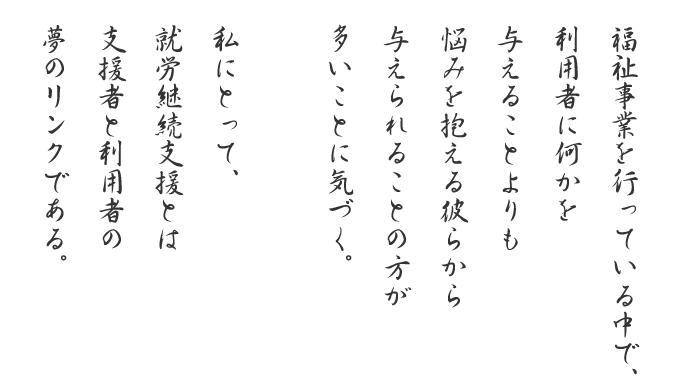 福祉事業を行っている中で、
利用者に何かを
与えることよりも
悩みを抱える彼らから
与えられることの方が
多いことに気づく。
私にとって、
就労継続支援とは
支援者と利用者の
夢のリンクである。